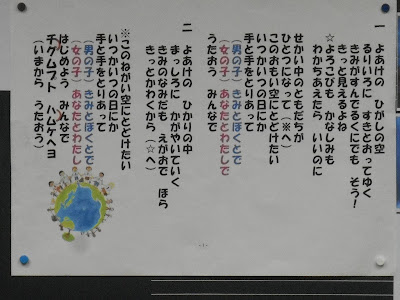 一 よあけの ひがしの空
るりいろに すきとおってゆく
きみがすんでるくにでも そう!
きっと見えるよね
☆よろこびも かなしみも
わかちあえたら いいのに
せかい中のともだちが
ひとつになって (※へ)
このおもい空にとどけたい
いつかいつの日にか
手と手をとりあって
(男の子) きみとぼくとで
(女の子) あなたとわたしで
うたおう みんなで
二 よあけの ひかりの中
まっしろに かがやいていく
きみのなみだも えがおで ほら
きっとかわくから (☆へ)
※このねがい空にとどけたい
いつかいつの日にか
手と手をとりあって
(男の子) きみとぼくとで
(女の子) あなたとわたしで
はじめよう みんなで
チグムフト ハムケヘヨ
(いまから うたおう)
-1-